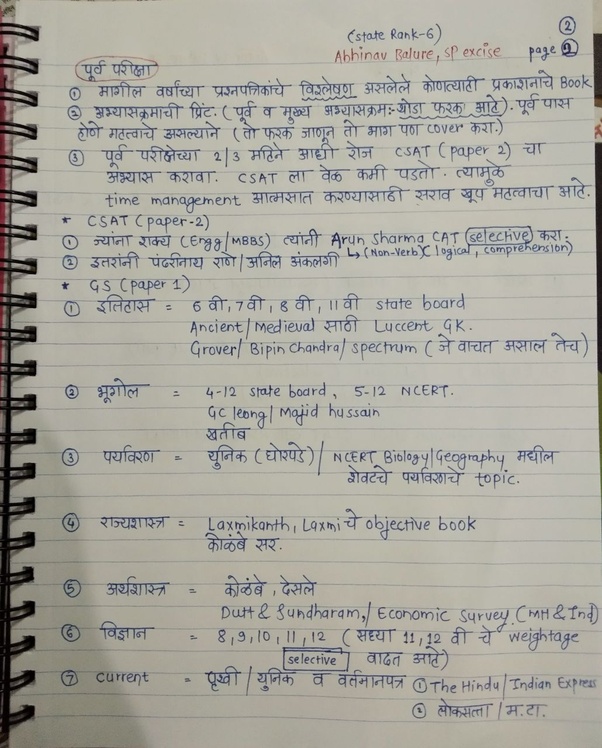 ②
(State Rank-6)
Abhinav Balure, SP excise page ②
पूर्व परीक्षा
① मागील वर्षांच्या प्रश्नपत्रिकांचे विश्लेषण असलेले कोणत्याही प्रकाशनाचे Book
② अभ्यासक्रमाची प्रिंट. (पूर्व व मुख्य अभ्यासक्रम:- थोडा फरक आहे). पूर्व पास
होणे महत्वाचे असल्याने (तो फरक जाणून तो भाग पण cover करा.)
③ पूर्व परीक्षेच्या 2/3 महिने आधी रोज CSAT (paper 2) चा
अभ्यास करावा. CSAT ला वेळ कमी पडतो. त्यामुळे
time management आत्मसात करण्यासाठी सराव खूप महत्वाचा आहे.
* CSAT (paper-2)
① ज्यांना शक्य (Engg/MBBS) त्यांनी Arun Sharma CAT selective करा.
↳ (Non-Verb) (logical, comprehension)
② इतरांनी पंढरीनाथ राणे/अनिल अंकलगी
* GS (paper 1)
① इतिहास = 6 वी, 7 वी, 8 वी, 11 वी state board
Ancient/Medieval साठी Luccent GK.
Grover/ Bipin Chandra/ spectrum (जे वाचत असाल तेच)
② भूगोल = 4-12 state board, 5-12 NCERT.
GC leong/ Majid hussain
खतीब
③ पर्यावरण = युनिक (घोरपडे)/ NCERT Biology/Geography मधील
शेवटचे पर्यावरणाचे topic.
④ राज्यशास्त्र = Laxmikanth, Laxmi चे objective book
कोळंबे सर.
⑤ अर्थशास्त्र = कोळंबे, देसले
Dutt & Sundharam,/ Economic Survey (MH & Ind)
⑥ विज्ञान = 8, 9, 10, 11, 12 (सध्या 11, 12 वी चे weightage
selective वाढत आहे)
⑦ Current = पृथ्वी / युनिक व वर्तमानपत्र ① The Hindu/ Indian Express
② लोकसत्ता / म.टा.